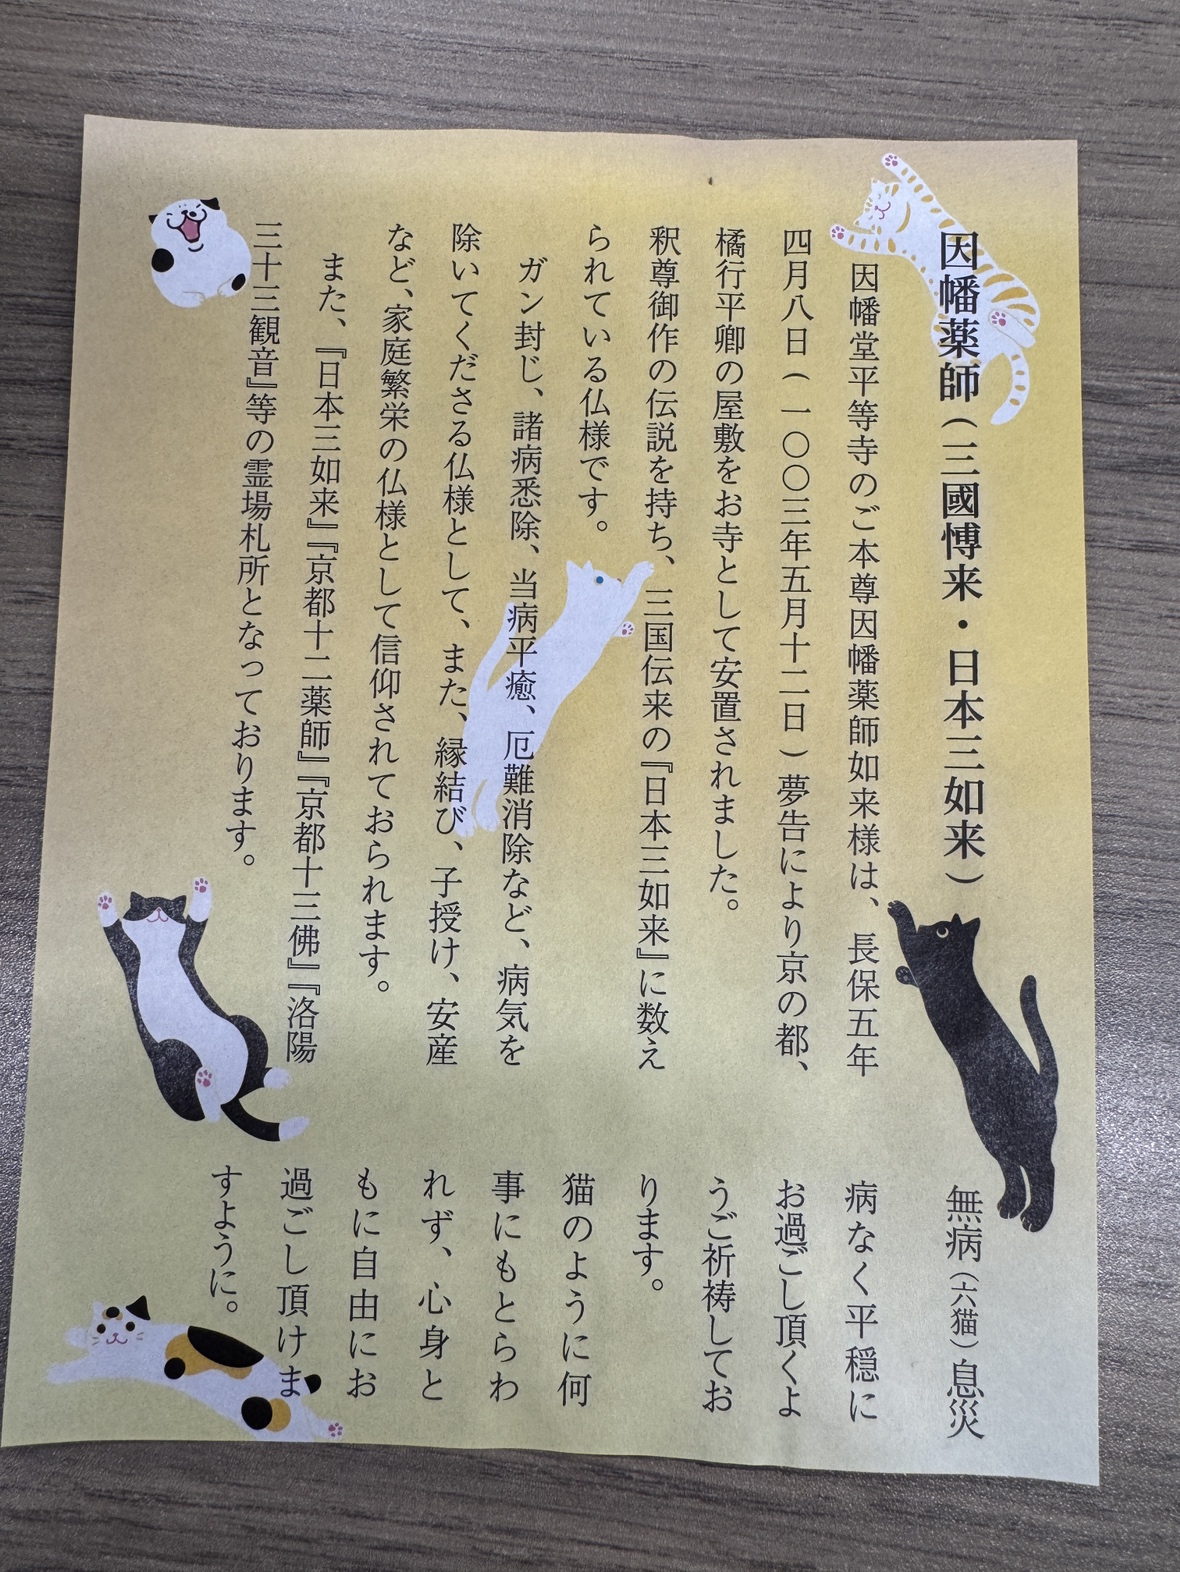 因幡薬師(三國愽来・日本三如来)
因幡堂平等寺のご本尊因幡薬師如来様は、長保五年
四月八日(一〇〇三年五月十二日)夢告により京の都、
橘行平卿の屋敷をお寺として安置されました。
釈尊御作の伝説を持ち、三国伝来の『日本三如来』に数え
られている仏様です。
ガン封じ、諸病悉除、当病平癒、厄難消除など、病気を
除いてくださる仏様として、また、縁結び、子授け、安産
など、家庭繁栄の仏様として信仰されておられます。
また、『日本三如来』『京都十二薬師』『京都十三佛』『洛陽
三十三観音』等の霊場札所となっております。
無病(六猫)息災
病なく平穏に
お過ごし頂くよ
うご祈祷してお
ります。
猫のように何
事にもとらわ
れず、心身と
もに自由にお
過ごし頂けま
すように。